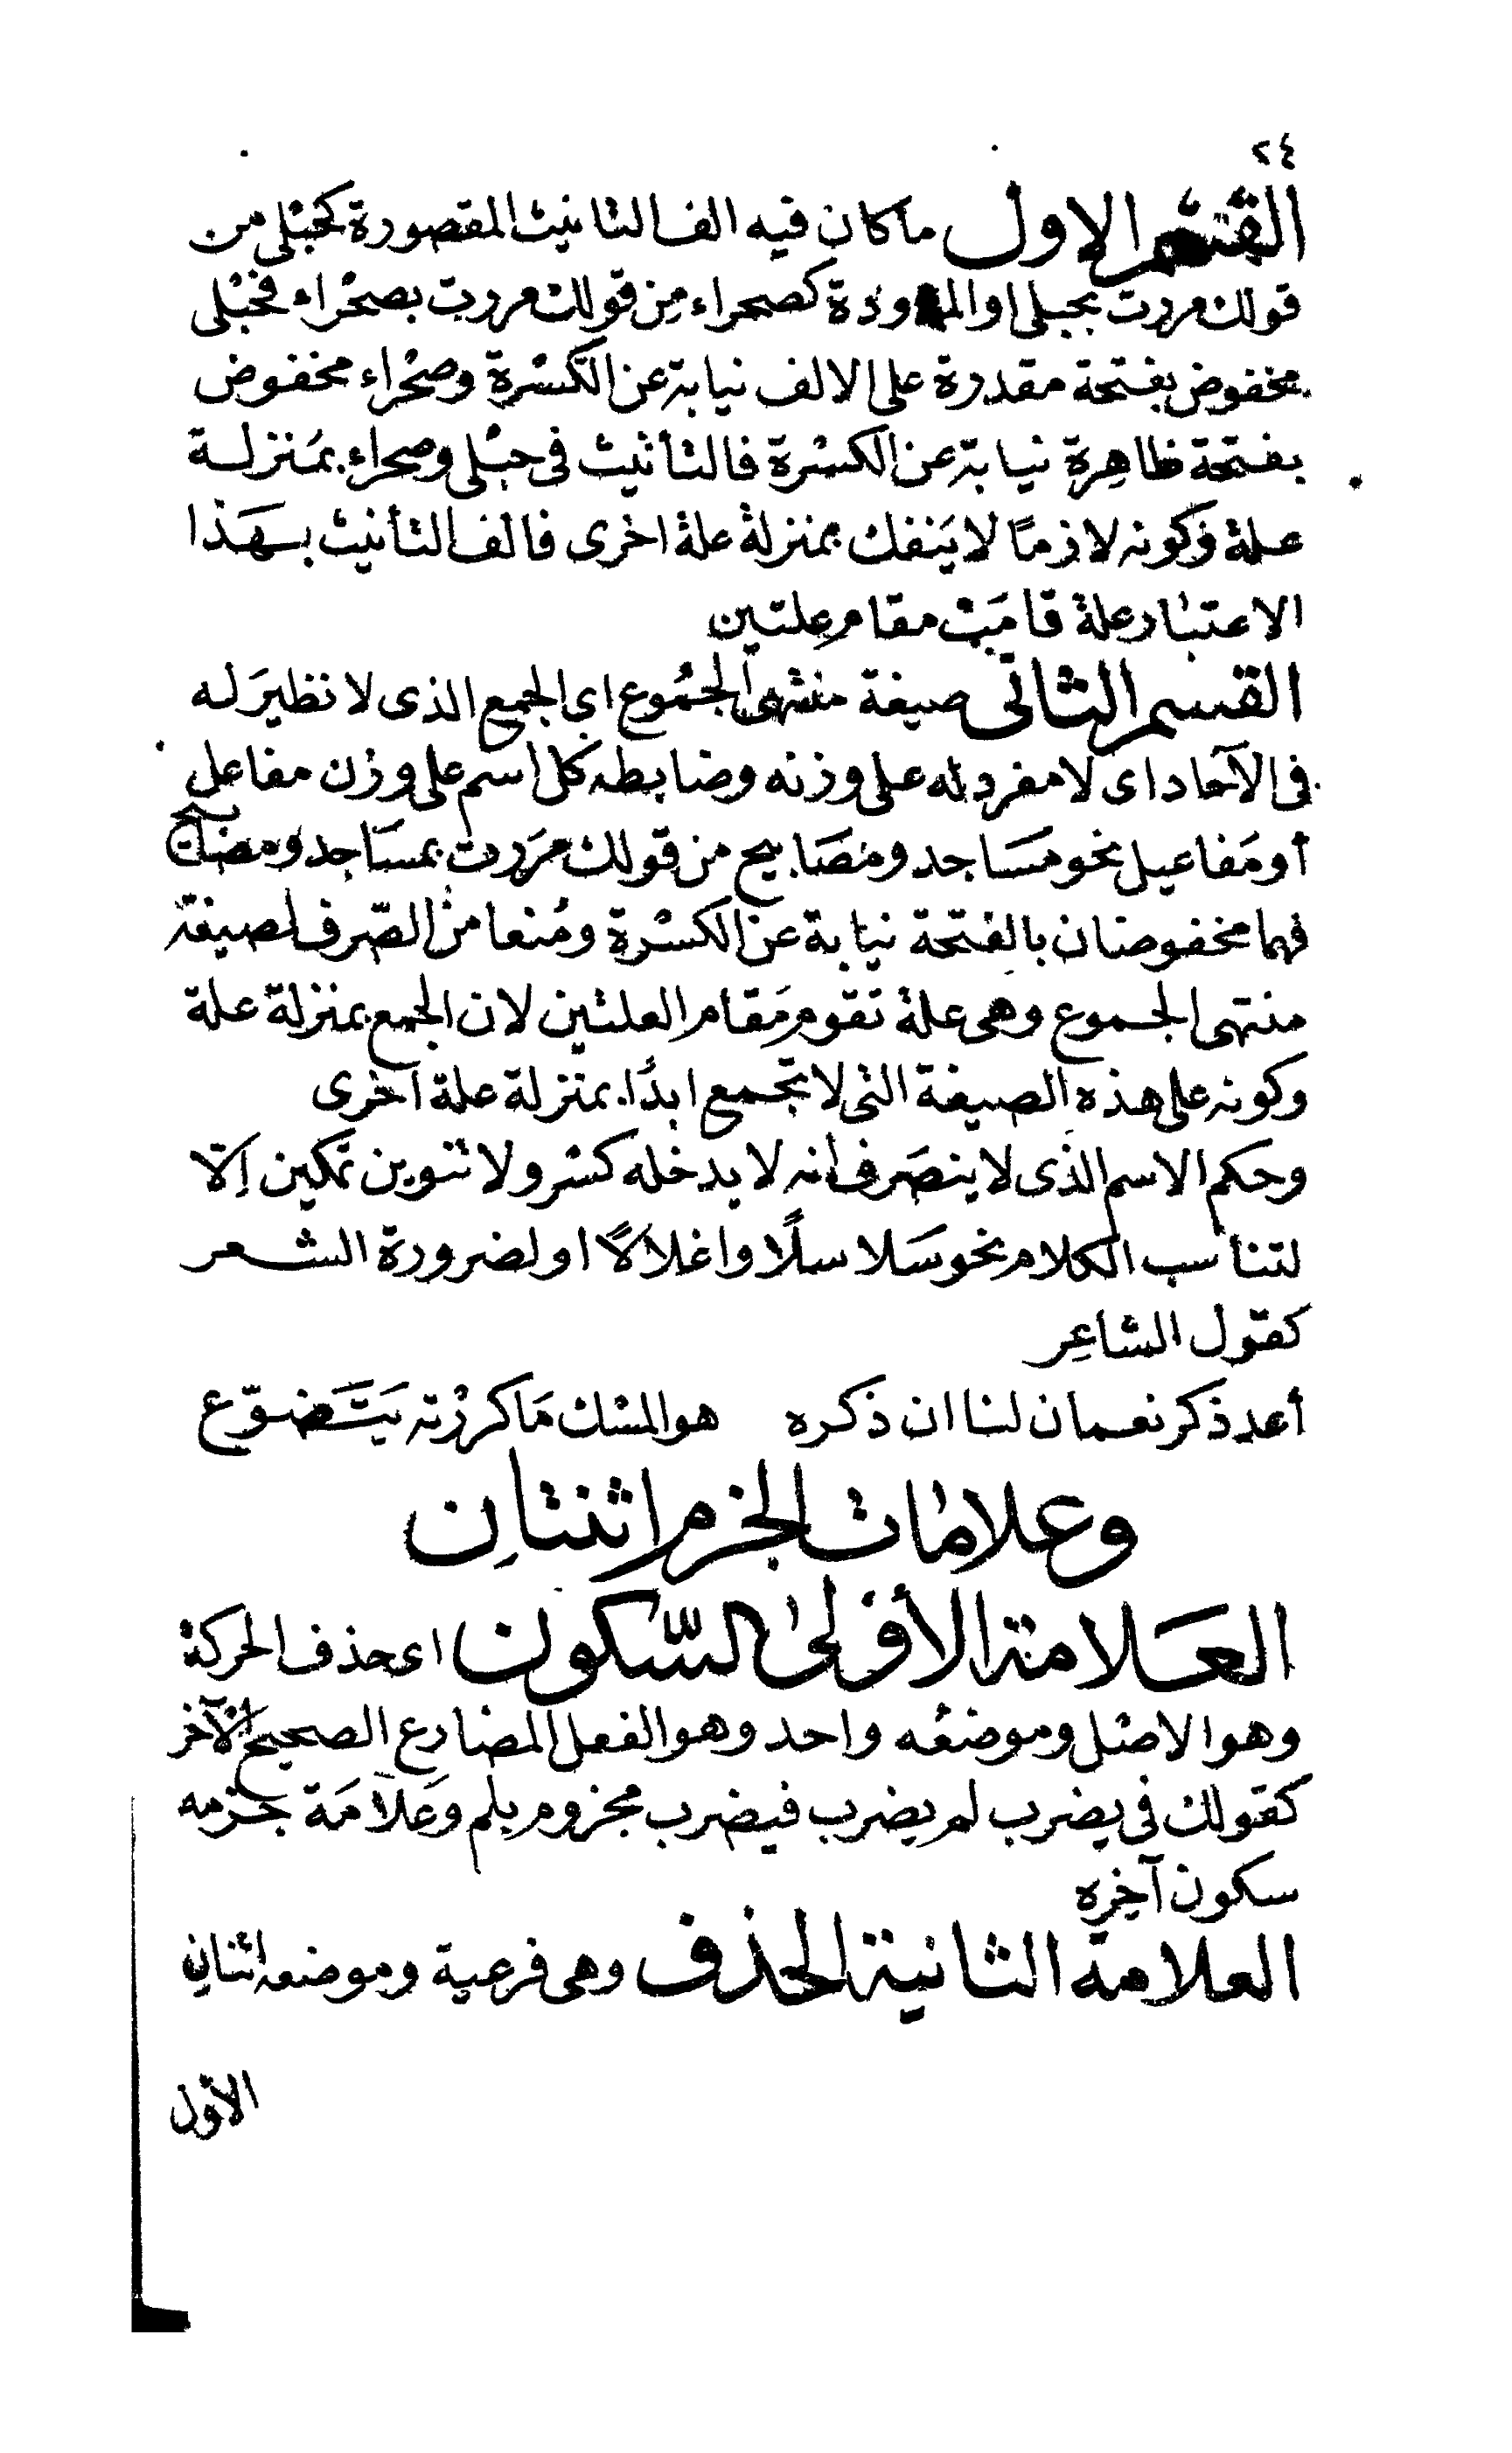 ٢٤
القسم الاول ما كان فيه الف التانيث المقصورة كحُبْلى من
قولك مررت بحبلى او الممدودة كصحراء مِن قولك مررت بصحْراء فحُبْلى
مخفوض بفتحة مقدرة على الالف نيابة عن الكسْرة وصحْراء مخفوض
بفتحة ظاهِرة نيابة عن الكسْرة فالتأنيث فى حبْلى وصحراء بمُنزلة
علة وكونه لازمًا لا يَنفك بمنزلة علة اخرى فالف التأنيث بهَذا
الاعتبار علة قامَتْ مقام عِلتين
القسم الثانى صيغة منتهى الجمُوع اى الجمع الذى لا نظيرَ له
فى الآحاد اى لا مفرد له على وزنه وضابطه كل اسم على وزن مفاعل
أو مَفاعيل نحو مسَاجد ومصَابيح من قولك مرَررت بمسَاجد ومصابيح
فهما مخفوضان بالفتحة نيابة عن الكسْرة ومُنعا من الصّرف لصيغة
منتهى الجموع وهى علة تقوم مَقام العلتين لان الجمع بمنزلة علة
وكونه على هذه الصيغة التى لا تجمع ابدًا بمنزلة علة اخرى
وحكم الاسم الذى لا ينصَرف انه لا يدخله كسْر ولا تنوين تمكين اِلّا
لتناسب الكلام نحو سَلاسلًا واغلالًا او لضرورة الشعر
كقول الشاعِر
أعد ذكر نعمان لنا ان ذكره هو المسْك مَا كررْته يَتَضوّع
وعلامات الجزم اثنتانِ
العَلامة الأولى السّكون اى حذف الحركة
وهو الاصْل وموضعُه واحد وهو الفعل المضارع الصحيح الآخر
كقولك فى يضرب لم يضرب فيضرب مجزوم بلم وعَلامَة جزمه
سكون آخِره
العلامة الثانية الحذف وهى فرعية وموضعه اثنانِ
الأوّل